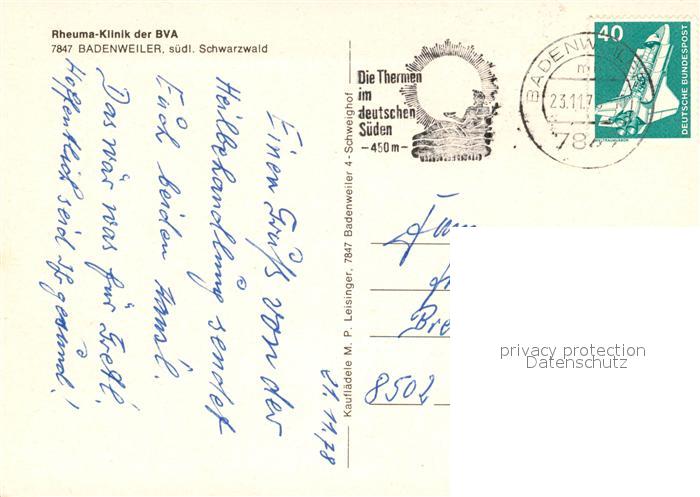 Rheuma-Klinik der BVA
7847 BADENWEILER, südl. Schwarzwald
21.11.78
Einen Gruß von der
Heilbehandlung sendet
Euch beiden
Das wär was für Gretl.
Hoffentlich seid Ihr gesund!
Kauflädele M. P. Leisinger, 7847 Badenweiler 4 - Schweighof
Die Thermen
im
deutschen
Süden
- 450 m -
BADENWEIL
23.11.7
784
40
DEUTSCHE BUNDESPOST
Fam
Bre
8502
privacy protection
Datenschutz